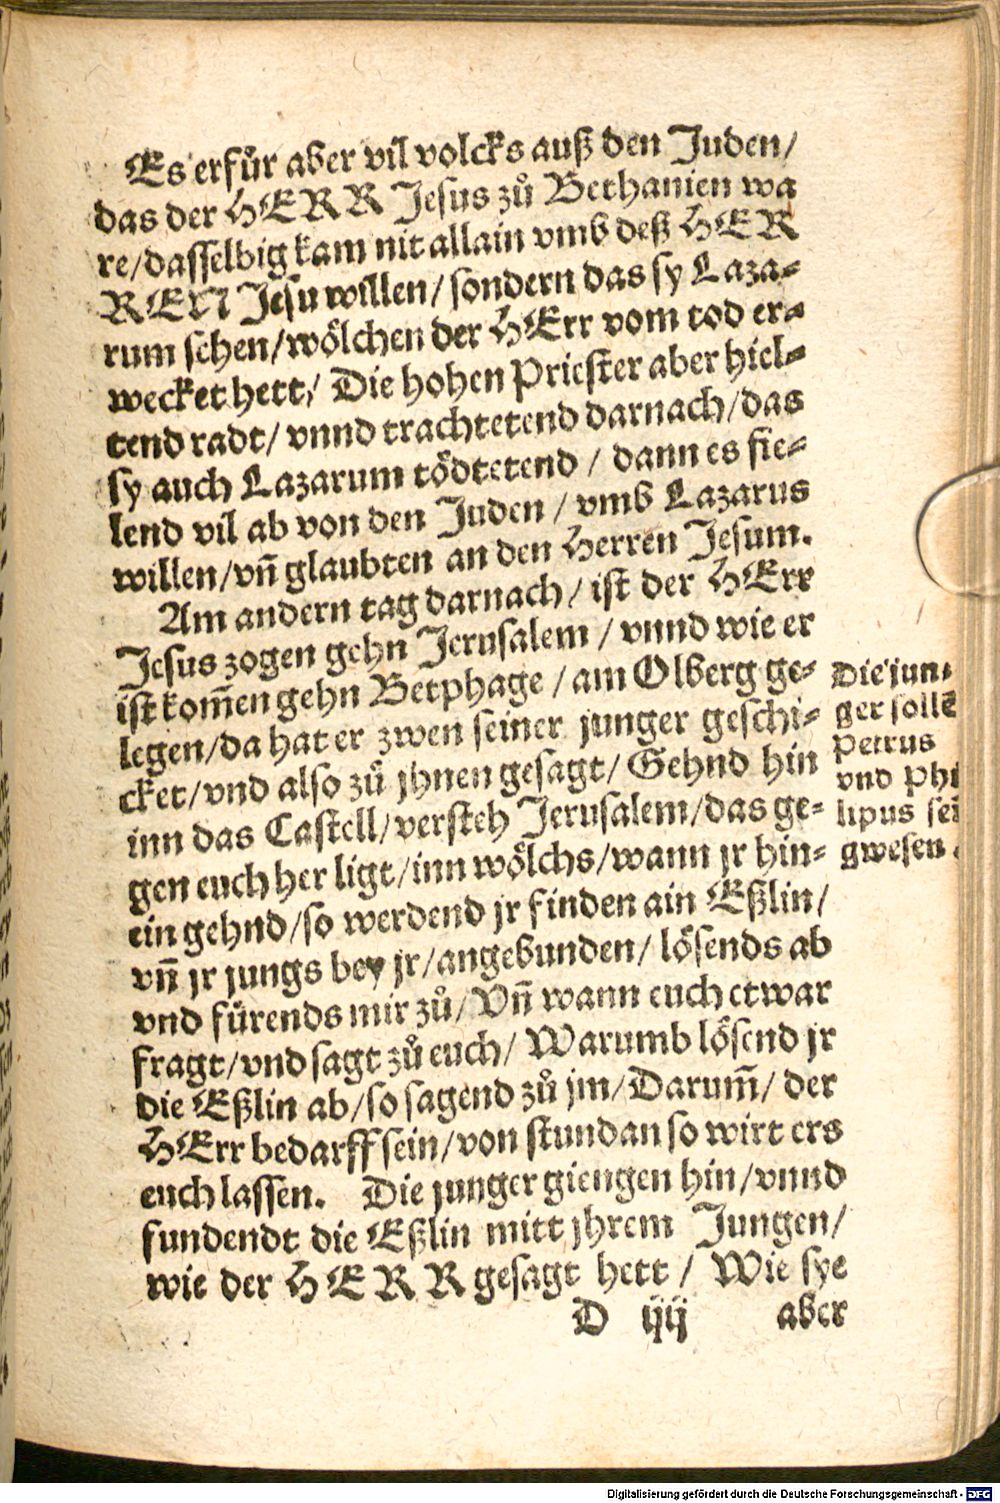 Es erfůr aber vil volcks auß den Juden/
das der HERR Jesus zů Bethanien wa
re/dasselbig kam nit allain vmb deß HER
REN Jesu willen/sondern das sy Laza-
rum sehen/wölchen der HErr vom tod er-
wecket hett/ Die hohen Priester aber hiel-
tend radt/ vnnd trachtetend darnach/das
sy auch Lazarum tödtetend / dann es fie-
lend vil ab von den Juden / vmb Lazarus
willen/vñ glaubten an den Herren Jesum.
Am andern tag darnach/ ist der HErr
Jesus zogen gehn Jerusalem / vnnd wie er
ist kom̃en gehn Betphage / am Olberg ge-
legen/da hat er zwen seiner junger geschi-
cket/vnd also zů jhnen gesagt/ Gehnd hin
inn das Castell/versteh Jerusalem/das ge-
gen euch her ligt/inn wölchs/wann jr hin-
ein gehnd/so werdend jr finden ain Eßlin/
vñ jr jungs bey jr/angebunden/ lösends ab
vnd fürends mir zů/ Vñ wann euch etwar
fragt/vnd sagt zů euch/ Warumb lösend jr
die Eßlin ab/so sagend zů jm/Darum̃/ der
HErr bedarff sein/von stundan so wirt ers
euch lassen. Die junger giengen hin/vnnd
fundendt die Eßlin mitt jhrem Jungen/
wie der HERR gesagt hett / Wie sye
D iiij aber
Die jun-
ger sollẽ
Petrus
vnd Phi
lipus sei
gwesen.
Digitalisierung gefördert durch die Deutsche Forschungsgemeinschaft - DFG